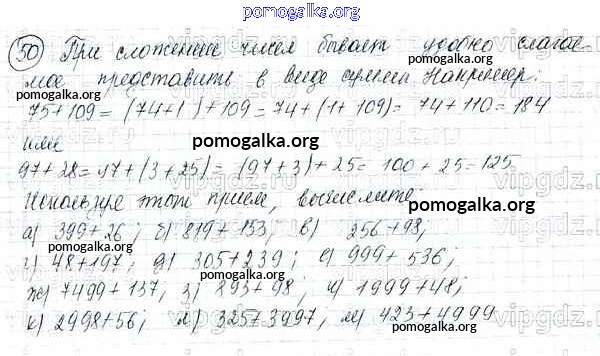 pomogalka.org
50 При сложении чисел бывает удобно слагае-
мое представить в виде суммы Например:
pomogalka.org
75+109 = (74+1)+109 = 74+(1+109) = 74+110 = 184
или pomogalka.org
97+28 = 97+(3+25) = (97+3)+25 = 100+25 = 125
Используя этот прием, вычислите: vipgdz.ru
pomogalka.org
а) 399+26; б) 819+153; в) 256+98;
pomogalka.org
г) 48+197; д) 305+239; е) 999+536;
pomogalka.org
ж) 7499+137; з) 893+98; и) 1999+48;
к) 2998+56; л) 325+3997; м) 423+4999
pomogalka.org